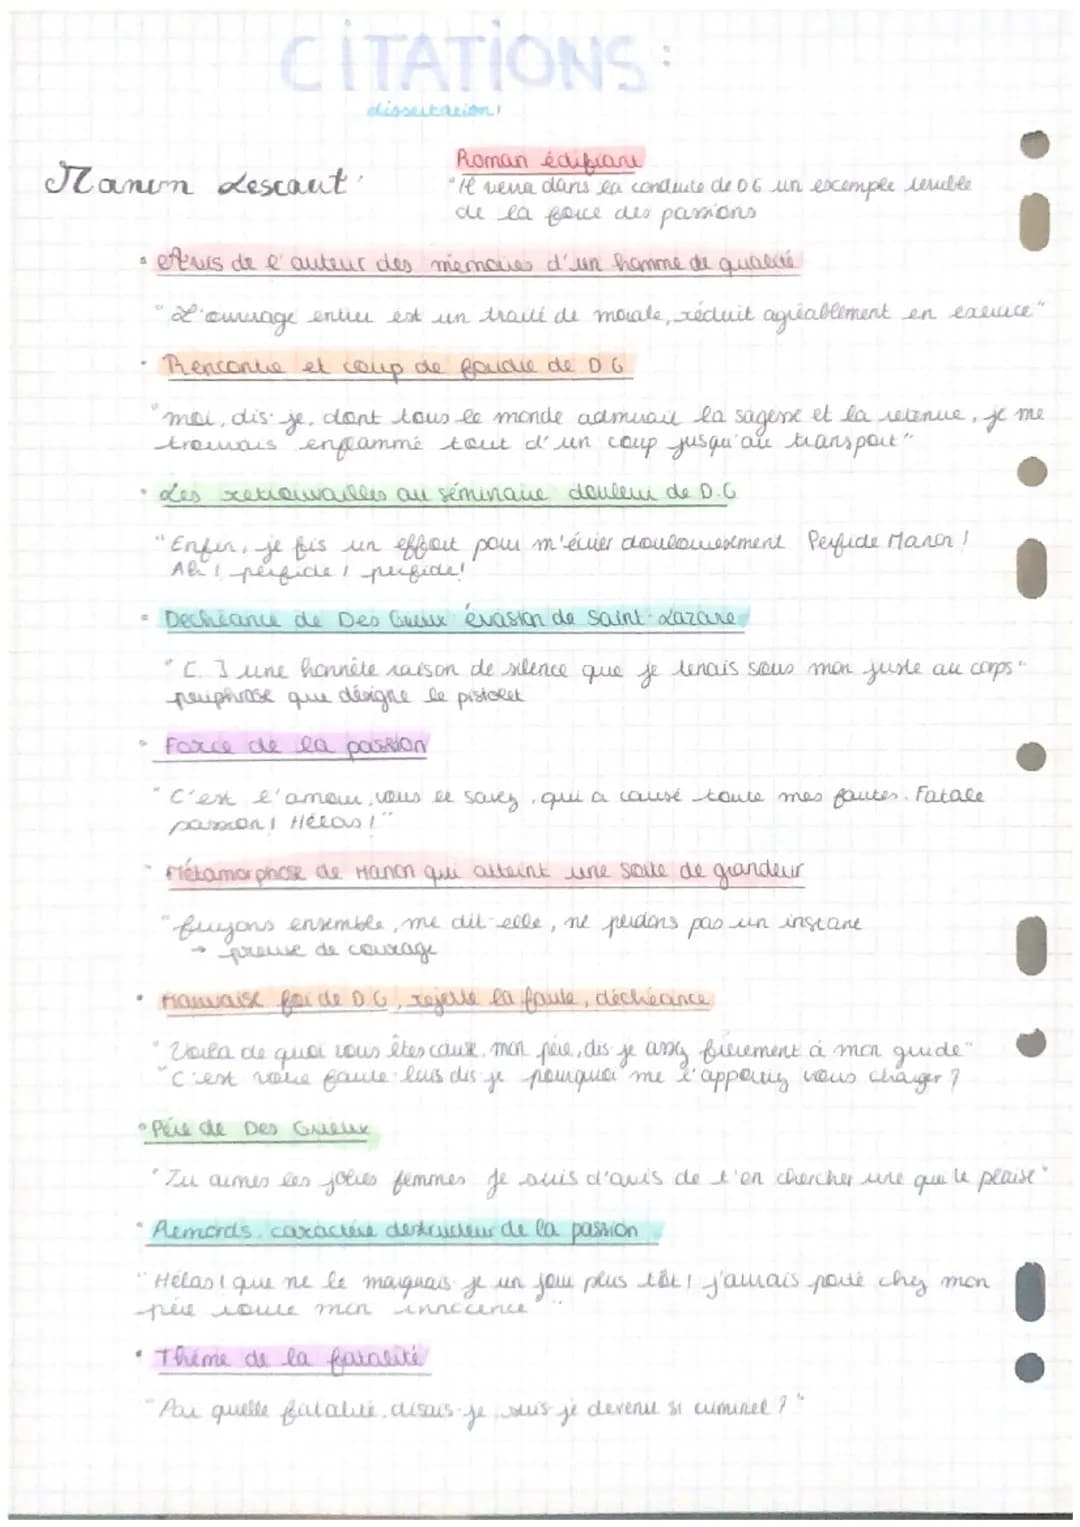 CITATIONS:
dissertation!
Manon Lescaut:
Roman édifiant
"Il verra dans la conduite de DG un exemple terrible
de la force des passions
• Avis de l'auteur des mémoires d'un homme de qualité
"L'ouvrage entier est un traité de morale, réduit agréablement en exercice"
• Rencontre et coup de foudre de DG
"moi, dis-je, dont tous le monde admirait la sagesse et la retenue, je me
trouvais enflammé tout d'un coup jusqu'au transport"
• Les retrouvailles au séminaire douleur de D.G
"Enfin, je fis un effort pour m'écrier douloureusement Perfide Manon!
Ah! perfide! perfide!
• Dechéance de Des Grieux évasion de Saint-Lazare
"[..] une honnête raison de silence que je tenais sous mon juste au corps"
périphrase qui désigne le pistolet
• Force de la passion
"C'est l'amour, vous le savez, qui a causé toute mes fautes. Fatale
passion! Hélas!"
• Métamorphose de Manon qui atteint une sorte de grandeur
"fuyons ensemble, me dit-elle, ne perdons pas un instant
→ preuve de courage
• Mauvaise foi de DG, rejette la faute, déchéance
"Voila de quoi vous êtes cause, mon père, dis-je assez fièrement à mon guide"
"C'est votre faute luis dis-je pourquoi me l'apportiez vous charger?
• Père de Des Grieux
"Tu aimes les jolies femmes je suis d'avis de t'en chercher une que te plaise"
• Remords, caractère destructeur de la passion
"Hélas! que ne le marquais-je un jour plus tôt! j'aurais porté chez mon
père toute mon innocence"
• Thème de la fatalité
"Par quelle fatalité, disais-je, suis-je devenu si criminel?"